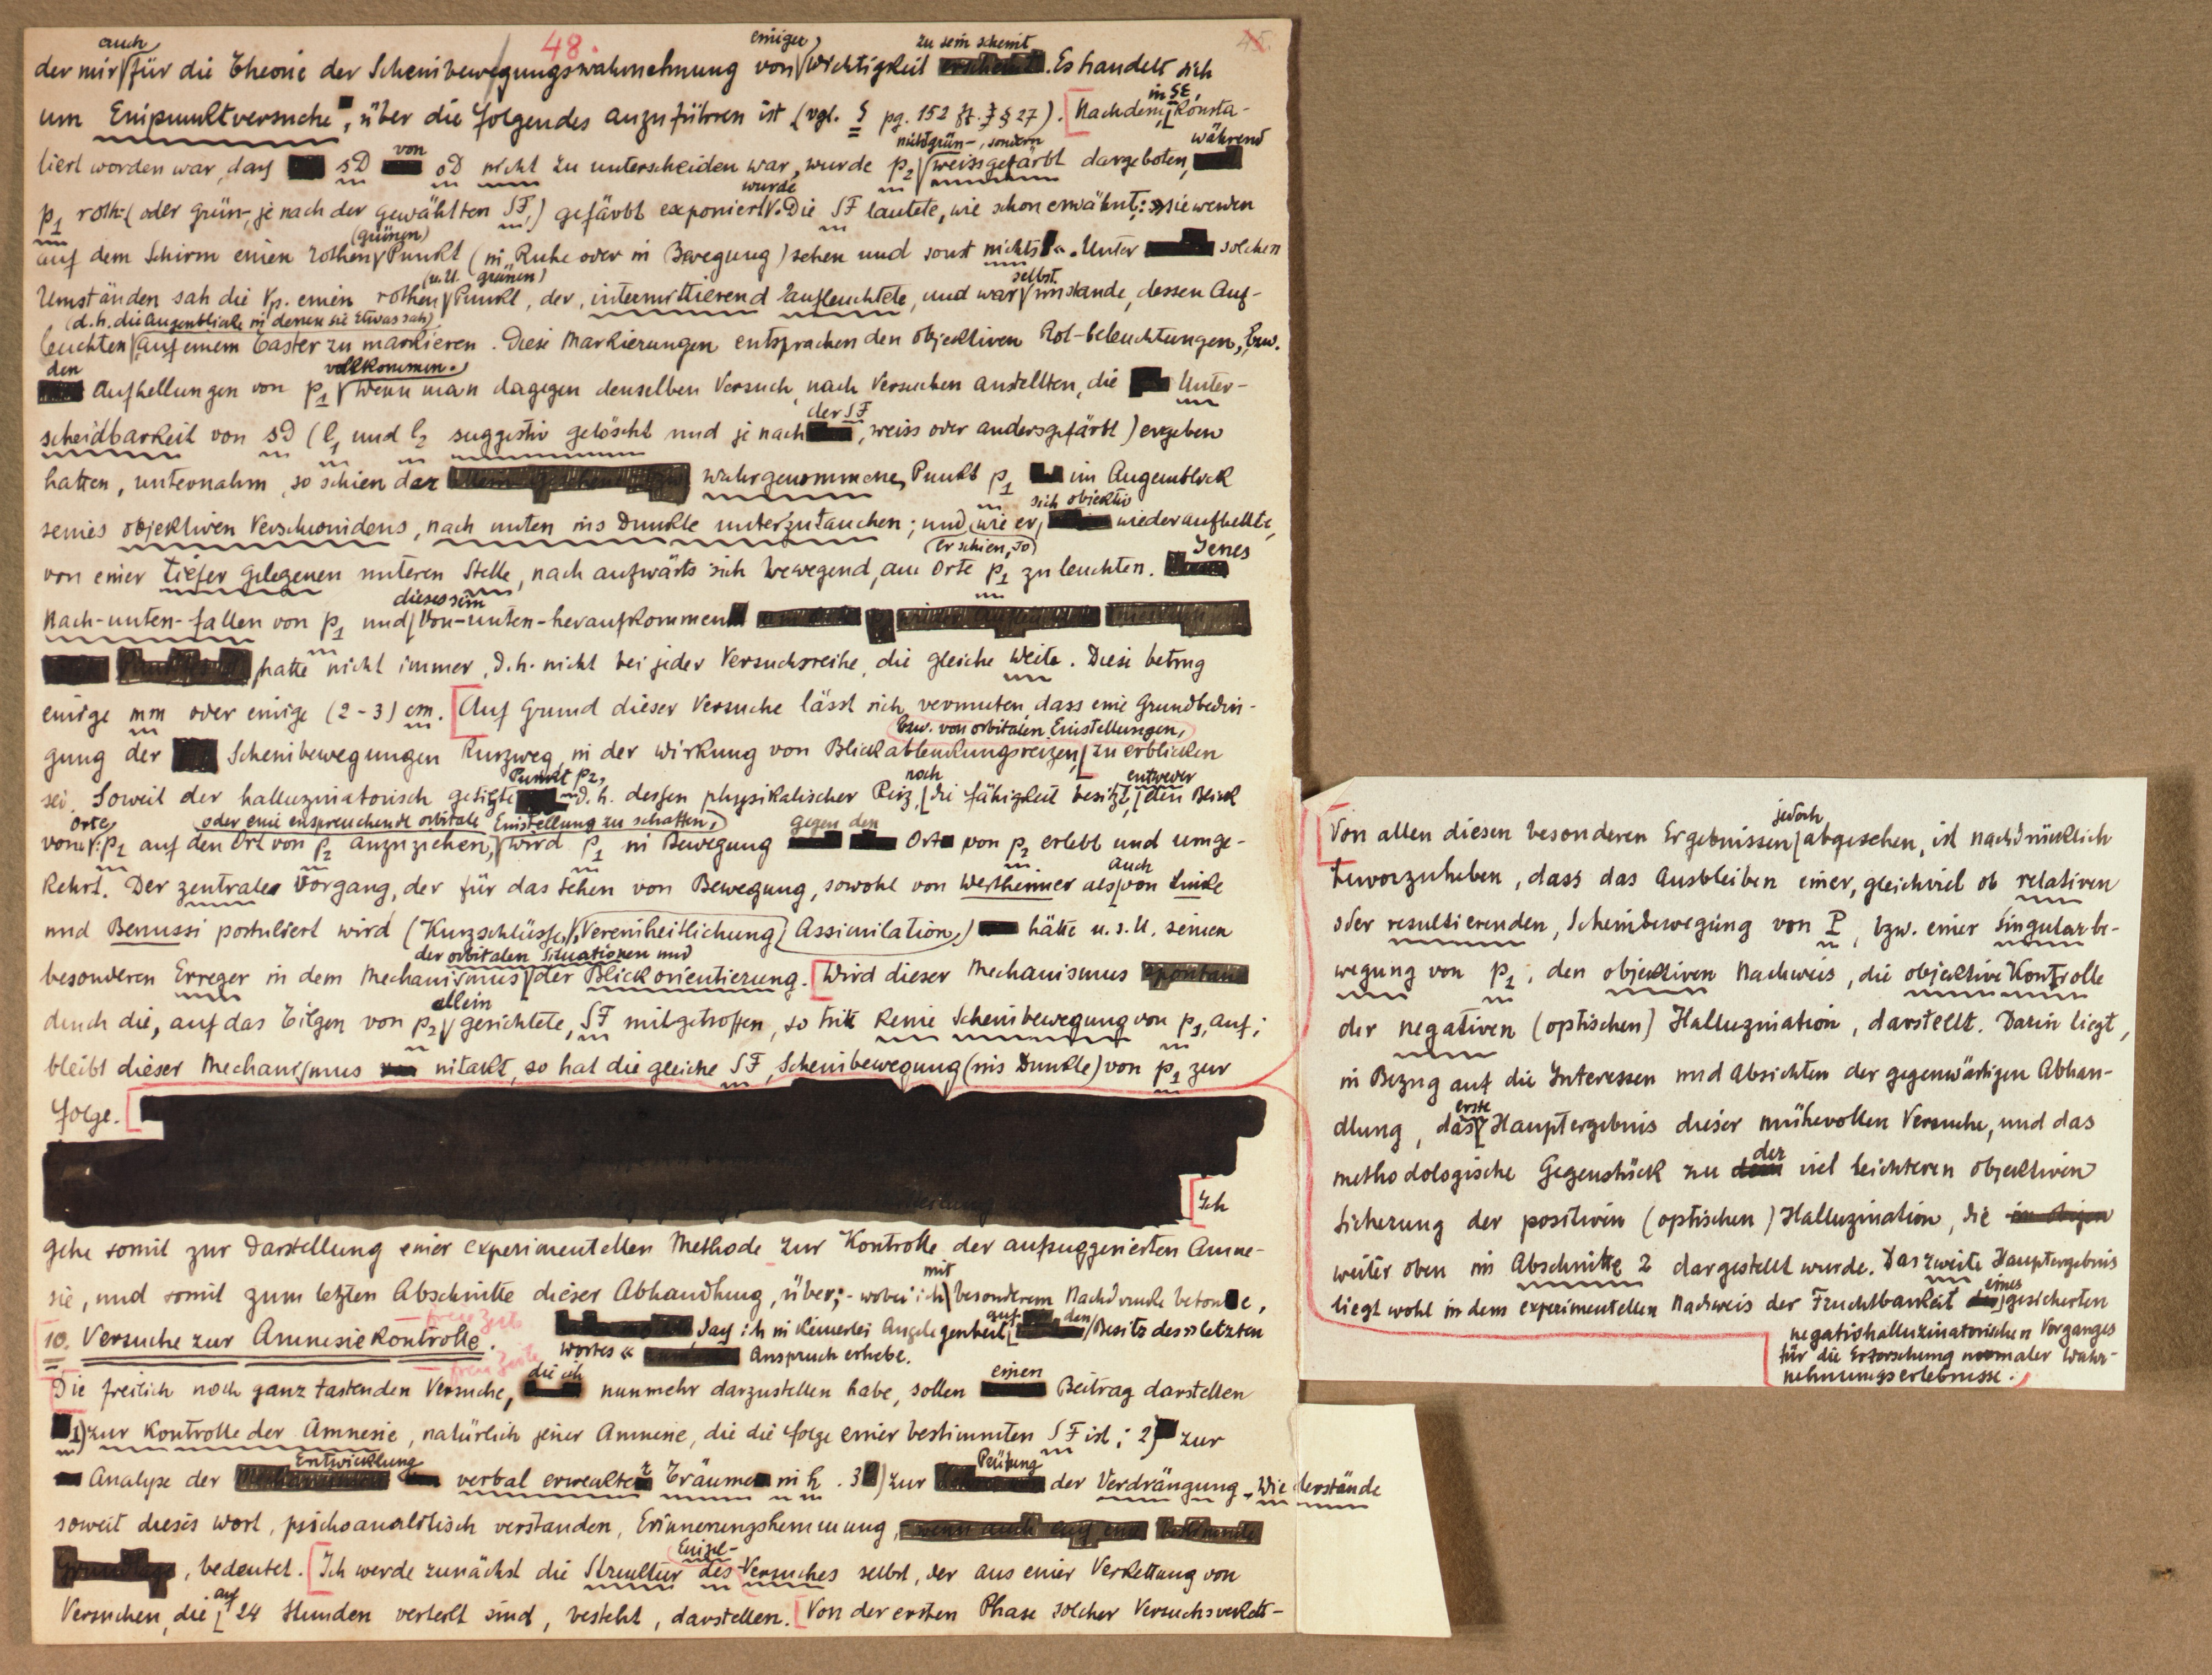 48.
45.
der mir auch für die Theorie der Scheinbewegungswahrnehmung von einiger Wichtigkeit zu sein scheint. Es handelt sich
um Einpunktversuche, über die folgendes anzuführen ist (vgl. § pg. 152 ff. § 27). [Nachdem, in SE, konsta-
tiert worden war, dass sD von oD nicht zu unterscheiden war, wurde p2 nicht grün-, sondern weissgefärbt dargeboten, während
p1 roth- (oder grün-, je nach der gewählten SF,) gefärbt exponiert wurde. Die SF lautete, wie schon erwähnt: »sie werden
auf dem Schirm einen rothen (grünen) Punkt (in Ruhe oder in Bewegung) sehen und sonst nichts«. Unter solchen
Umständen sah die Vp. einen rothen (u. U. grünen) Punkt, der, intermittierend aufleuchtete, und war selbst imstande, dessen Auf-
leuchten (d. h. die Augenblicke in denen sie etwas sah) auf einem Taster zu markieren. Diese Markierungen entsprachen den objektiven Rot-beleuchtungen, bzw.
den Aufhellungen von p1 vollkommen. Wenn man dagegen denselben Versuch, nach Versuchen anstellten, die Unter-
scheidbarkeit von sD (l1 und l2 suggestiv gelöscht und je nach der SF, weiss oder andersgefärbt) ergeben
hatten, unternahm, so schien der wahrgenommene Punkt p1 im Augenblick
seines objektiven Verschwindens, nach unten ins Dunkle unterzutauchen; und, wie er, sich objektiv wieder aufhellte,
(erschien, so)
von einer tiefer gelegenen unteren Stelle, nach aufwärts sich bewegend, am Orte p1 zu leuchten. Jenes
Nach-unten-fallen von p1 und dieses sein Von-unten-heraufkommen
hatte nicht immer, d. h. nicht bei jeder Versuchsreihe, die gleiche Weite. Diese betrug
einige mm oder einige (2-3) cm. [Auf Grund dieser Versuche lässt sich vermuten, dass eine Grundbedin-
gung der Scheinbewegungen kurzweg, in der Wirkung von Blickablenkungsreizen, bzw. von orbitalen Einstellungen, zu erblicken
sei. Soweit der halluzinatorisch getilgte Punkt p2, d. h. dessen physikalischer Reiz, noch die Fähigkeit besitzt, entweder den Blick
vom Orte p1 auf den Ort von p2 anzuziehen, oder eine entsprechende orbitale Einstellung zu schaffen, wird p1 in Bewegung gegen den Ort von p2 erlebt und umge-
kehrt. Der zentrale Vorgang, der für das Sehen von Bewegung, sowohl von Wertheimer als auch von Linke
und Benussi postuliert wird (Kurzschlüsse, Vereinheitlichung, Assimilation,) hätte u. s. U. seinen
besonderen Erreger in dem Mechanismus der orbitalen Situationen und der Blickorientierung. [Wird dieser Mechanismus
durch die, auf das Tilgen von p2 allein gerichtete, SF mitgetroffen, so tritt keine Scheinbewegung von p1 auf;
bleibt dieser Mechanismus intakt, so hat die gleiche SF, Scheinbewegung (ins Dunkle) von p1 zur
Folge.
[Ich
gehe somit zur Darstellung einer experimentellen Methode zur Kontrolle der aufsuggerierten Amne-
sie, und somit zum letzten Abschnitte dieser Abhandlung, über; - wobei ich mit besonderem Nachdrucke betone,
dass ich in keinerlei Angelegenheit auf den Besitz des »letzten
Wortes« Anspruch erhebe.
10. Versuche zur Amnesiekontrolle.
freie Zeile
freie Zeile
Die freilich noch ganz tastenden Versuche, die ich nunmehr darzustellen habe, sollen einen Beitrag darstellen
1) zur Kontrolle der Amnesie, natürlich jener Amnesie, die die Folge einer bestimmten SF ist; 2) zur
Analyse der Entwicklung verbal erweckter Träume in h. 3) zur Prüfung der Verdrängung-Widerstände
soweit dieses Wort, psichoanalitisch verstanden, Erinnerungshemmung,
bedeutet. [Ich werde zunächst die Struktur des Einzel-Versuches selbst, der aus einer Verkettung von
Versuchen, die auf 24 Stunden verteilt sind, besteht, darstellen. [Von der ersten Phase solcher Versuchsverket-
[Von allen diesen besonderen Ergebnissen jedoch abgesehen, ist nachdrücklich
hervorzuheben, dass das Ausbleiben einer, gleichviel ob relativen
oder resultierenden, Scheinbewegung von P, bzw. einer Singularbe-
wegung von p1, den objektiven Nachweis, die objektive Kontrolle
der negativen (optischen) Halluzination, darstellt. Darin liegt,
in Bezug auf die Interessen und Absichten der gegenwärtigen Abhan-
dlung, das erste Hauptergebnis dieser mühevollen Versuche, und das
methodologische Gegenstück zu der viel leichteren objektiven
Sicherung der positiven (optischen) Halluzination, die
weiter oben im Abschnitte 2 dargestellt wurde. Das zweite Hauptergebnis
liegt wohl in dem experimentellen Nachweis der Fruchtbarkeit eines gesicherten
negativhalluzinatorischen Vorganges
für die Erforschung normaler Wahr-
nehmungserlebnisse.